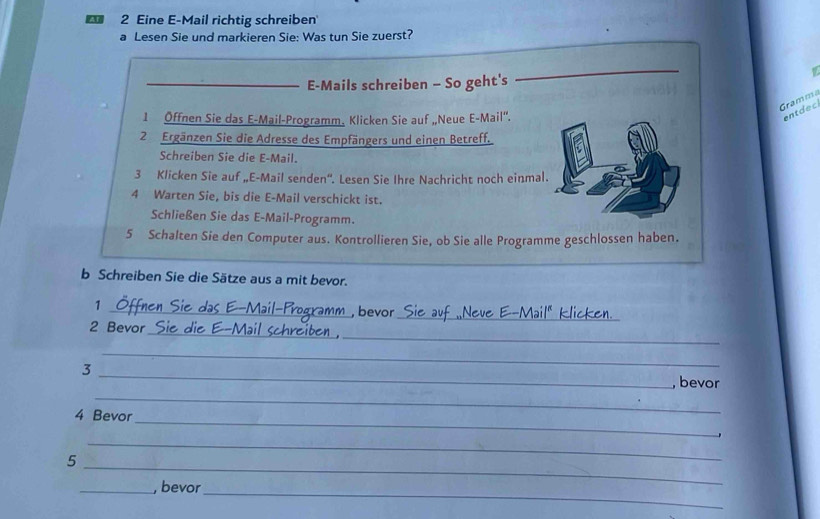 A1 2 Eine E-Mail richtig schreiben
a Lesen Sie und markieren Sie: Was tun Sie zuerst?
E-Mails schreiben – So geht's
1 Öffnen Sie das E-Mail-Programm. Klicken Sie auf „Neue E-Mail“.
2 Ergänzen Sie die Adresse des Empfängers und einen Betreff.
Schreiben Sie die E-Mail.
3 Klicken Sie auf „E-Mail senden“. Lesen Sie Ihre Nachricht noch einmal.
4 Warten Sie, bis die E-Mail verschickt ist.
Schließen Sie das E-Mail-Programm.
5 Schalten Sie den Computer aus. Kontrollieren Sie, ob Sie alle Programme geschlossen haben.
b Schreiben Sie die Sätze aus a mit bevor.
1 Öffnen Sie das E-Mail-Programm, bevor Sie auf „Neue E-Mail“ klicken.
2 Bevor Sie die E-Mail schreiben,
3 , bevor
4 Bevor ,
5
, bevor
Gramma
entdec